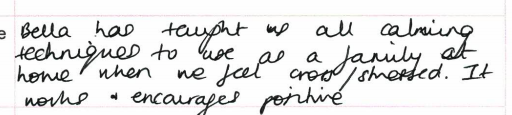 Bella has taught us all calming
techniques to use as a family at
home when we feel cross/stressed. It
works & encourages positive